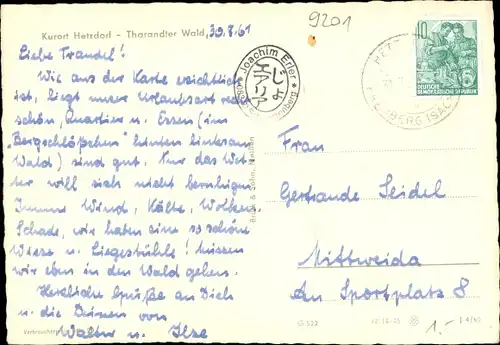 Kurort Hetzdorf - Tharandter Wald, 30.8.61
9201
Liebe Traudel!
Wie aus der Karte ersichtlich
ist, liegt unser Urlaubsort recht
schön, Quartier u. Essen (im
"Bergschlößchen" hinten links am
Wald) sind gut. Nur das Wet-
ter will sich nicht beruhigen.
Immer Wind, Kälte, Wolken.
Schade, wir haben eine so schöne
Wiese u. Liegestühle! Müssen
wir eben in den Wald gehen.
Herzliche Grüße an Dich
u. die Deinen von
Walter u. Ilse
Joachim Erler
じょ
エアリア
40
DEUTSCHE
DEMOKRATISCHE REPUBLIK
HETZ
FREIBERG (SACHS)
& Sohn,
Frau
Gertraude Seidel
Mittweida
Am Sportplatz 11
G 522
1.-